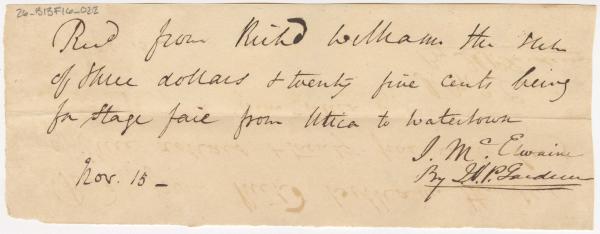 26-B1BF16-022
Recd from Richd Williams the sum
of three dollars & twenty five cents being
for Stage fare from Utica to Watertown
J. McElwaine
Nov. 15 - By J. P. Gardner